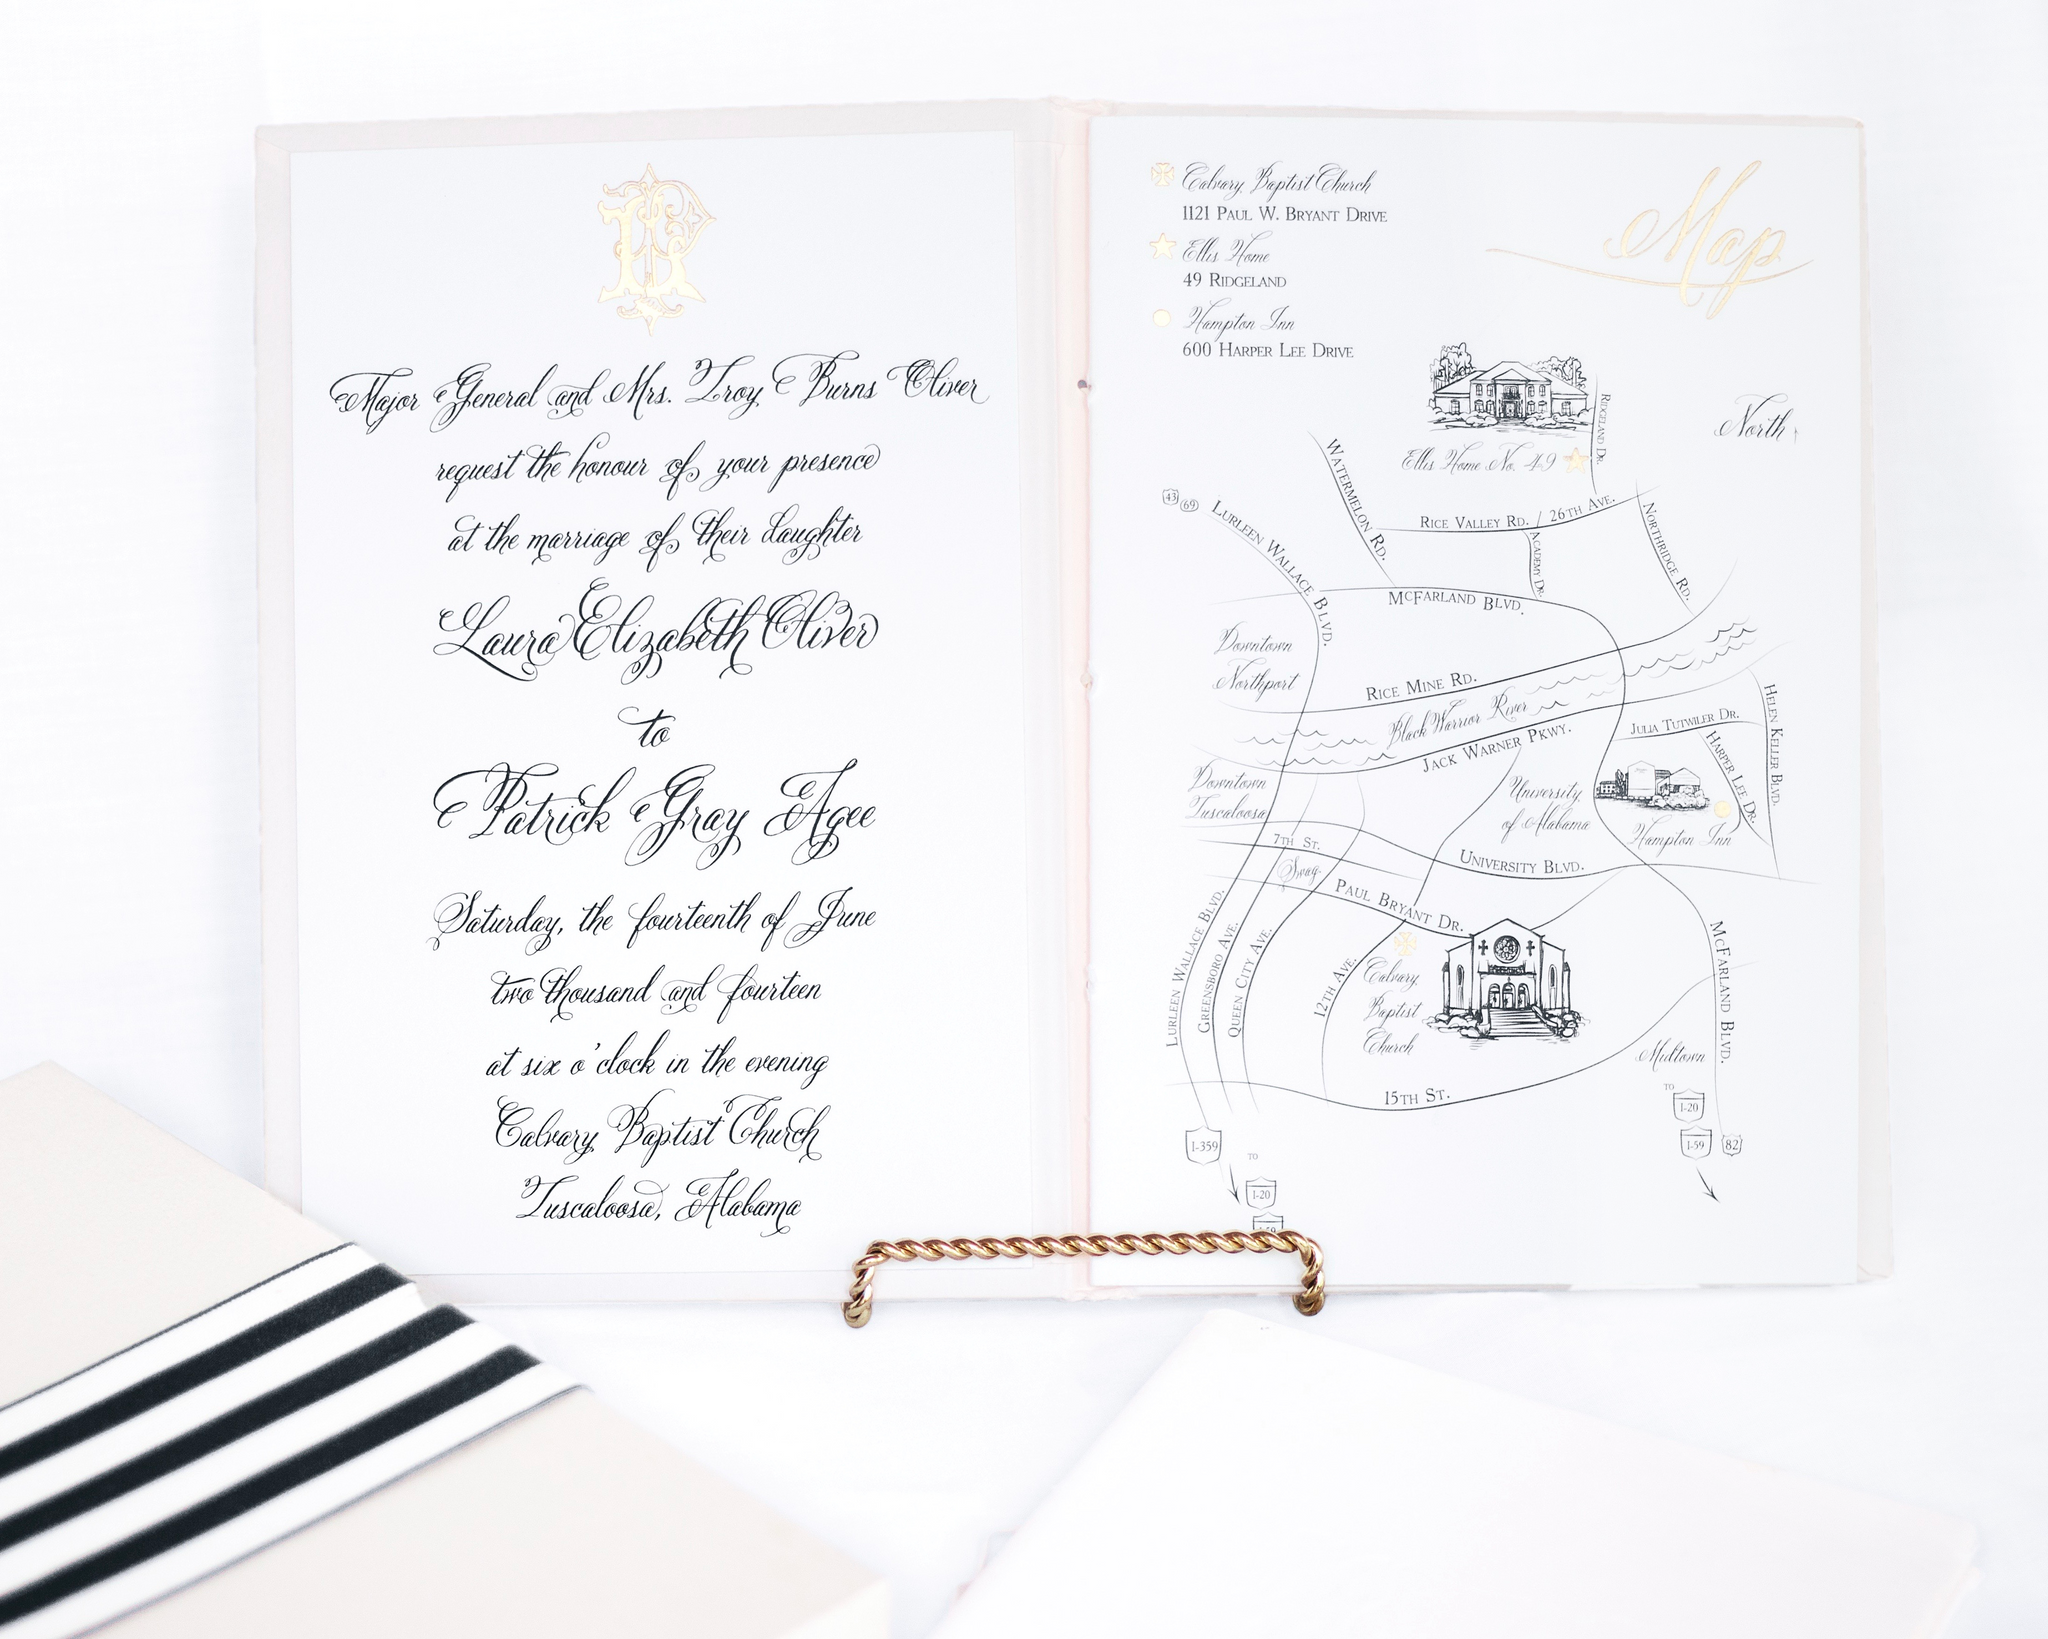 Major General and Mrs. Troy Burns Oliver
request the honour of your presence
at the marriage of their daughter
Laura Elizabeth Oliver
to
Patrick Gray Agee
Saturday, the fourteenth of June
two thousand and fourteen
at six o'clock in the evening
Calvary Baptist Church
Tuscaloosa, Alabama
Map
Calvary Baptist Church
1121 Paul W. Bryant Drive
Ellis Home
49 Ridgeland
Hampton Inn
600 Harper Lee Drive
North
Ridgeland Dr.
Ellis Home No. 49
Watermelon Rd.
43
69
Lurleen Wallace Blvd.
Rice Valley Rd. / 26th Ave.
Academy Dr.
Northridge Rd.
McFarland Blvd.
Downtown
Northport
Rice Mine Rd.
Black Warrior River
Jack Warner Pkwy.
Julia Tutwiler Dr.
Helen Keller Blvd.
Harper Lee Dr.
Downtown
Tuscaloosa
University
of Alabama
Hampton Inn
7th St.
Swag
University Blvd.
Paul Bryant Dr.
Lurleen Wallace Blvd.
Greensboro Ave.
Queen City Ave.
12th Ave.
Calvary
Baptist
Church
McFarland Blvd.
Midtown
15th St.
to
I-20
I-59
82
I-359
to
I-20
I-59